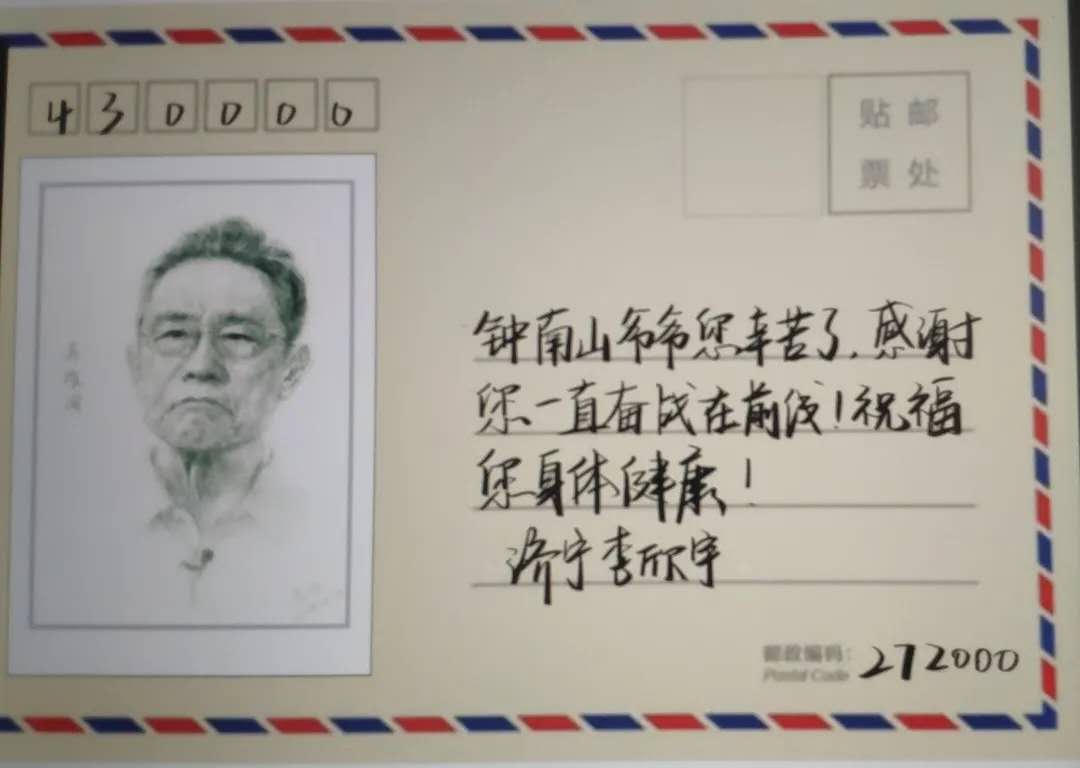 430000
贴 邮
票 处
钟南山爷爷您辛苦了,感谢
您一直奋战在前线!祝福
您身体健康!
济宁李欣宇
邮政编码: 272000
Postal Code